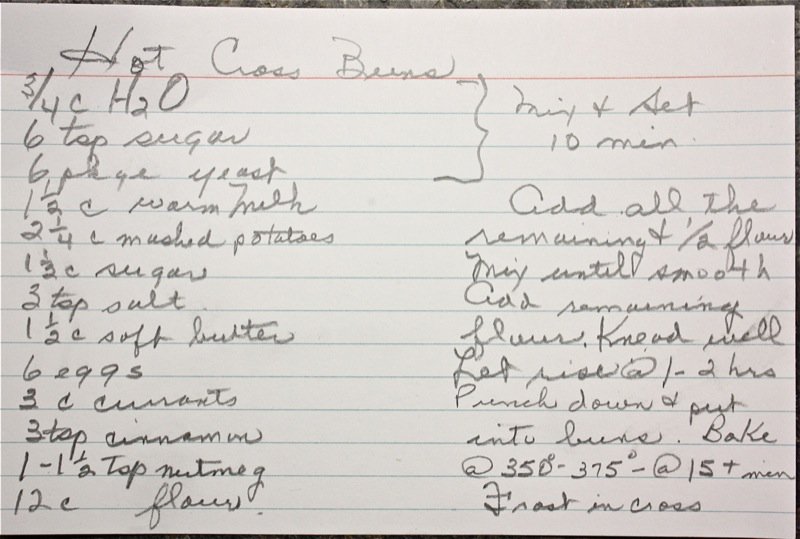 Hot Cross Buns
3/4 c H2O
6 tsp sugar
6 pkge yeast
mix & set
10 min.
1 1/2 c warm milk
2 1/4 c mashed potatoes
1 1/2 c sugar
3 tsp salt
1 1/2 c soft butter
6 eggs
3 c currants
3 tsp cinnamon
1-1 1/2 Tsp nutmeg
12 c flour.
Add all the
remaining & 1/2 flour
Mix until smooth
Add remaining
flour. Knead well
Let rise @ 1-2 hrs
Punch down & put
into buns. Bake
@ 350°-375°-@ 15+ min
Frost in cross